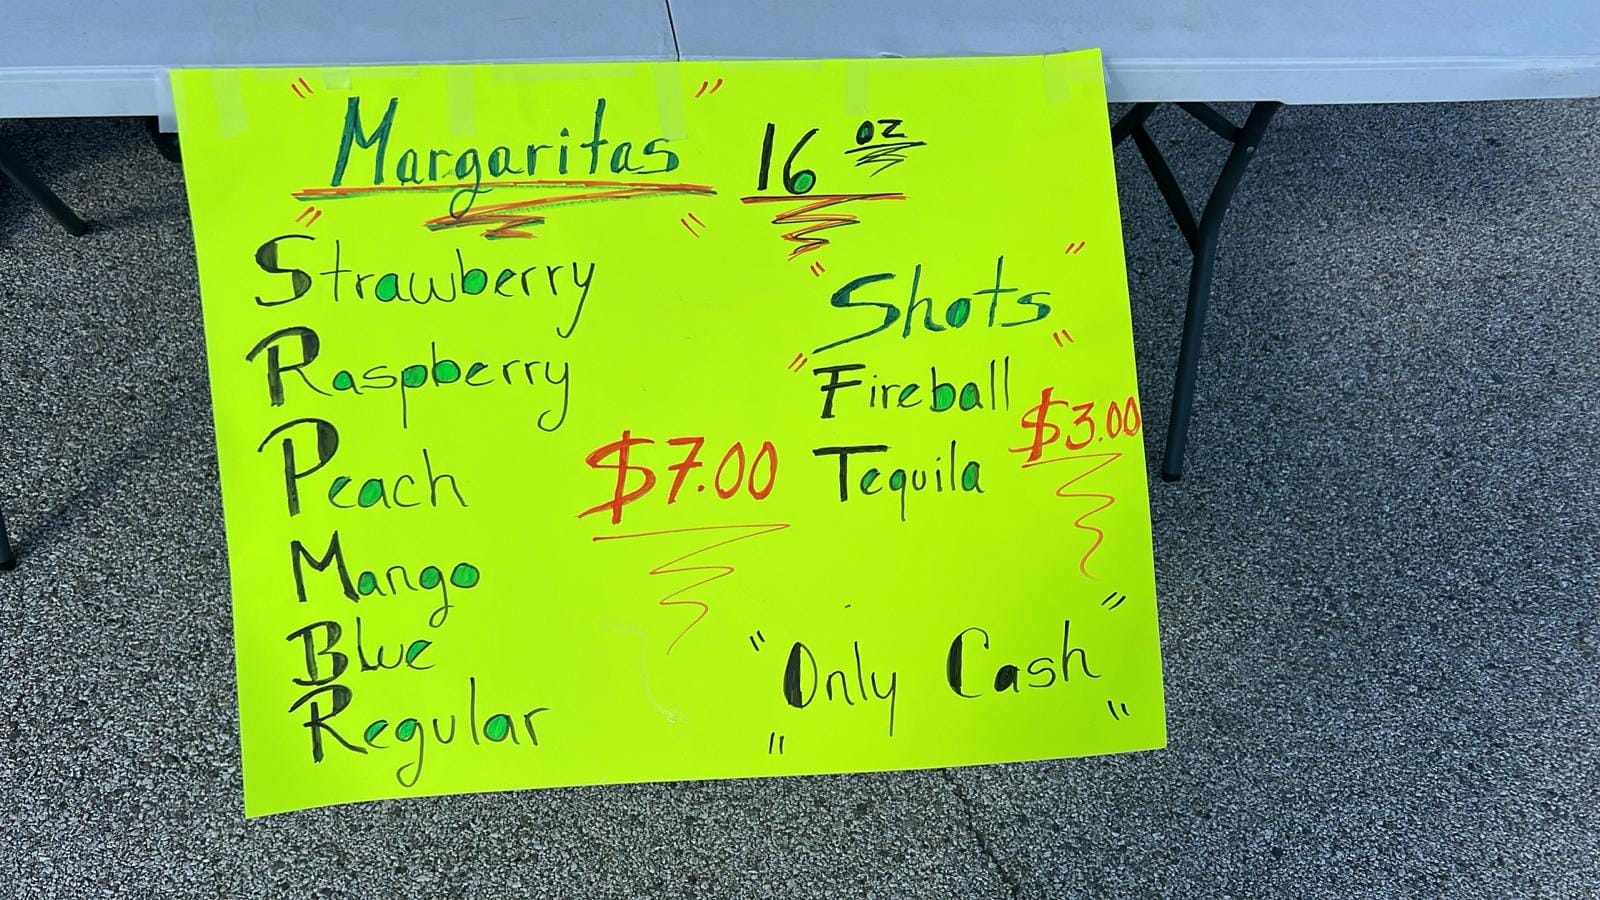 "Margaritas" 16 oz
Strawberry
Raspberry
Peach
Mango
Blue
Regular
$7.00
"Shots"
Fireball
Tequila
$3.00
"Only Cash"